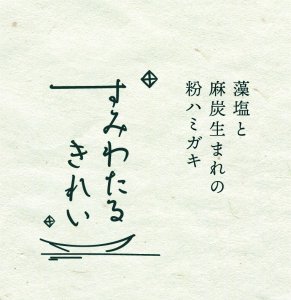 藻塩と
麻炭生まれの
粉ハミガキ
すみわたる
きれい